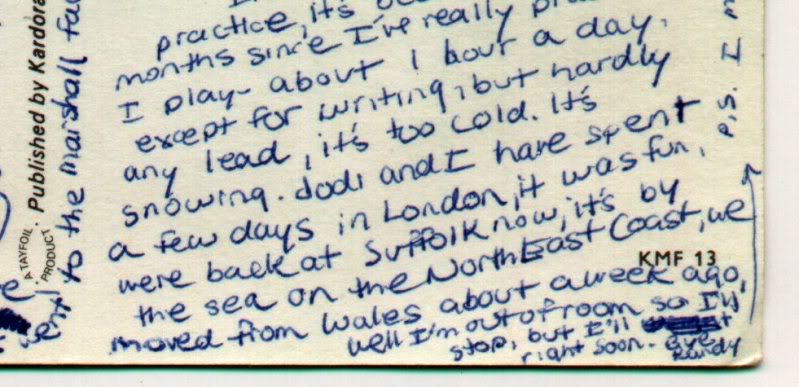 practice, it's
months since I've really
I play - about 1 hour a day.
except for writing, but hardly
any lead, it's too cold. It's
snowing. Jodi and I have spent
a few days in London, it was fun,
were back at Suffolk now, it's by
the sea on the NorthEast Coast, we
moved from Wales about a week ago,
well I'm out of room so I'll
stop, but I'll
right soon. - Bye
Randy
P.S. I
KMF 13
Published by Kardora
A TAYFOIL
PRODUCT
to the Marshall